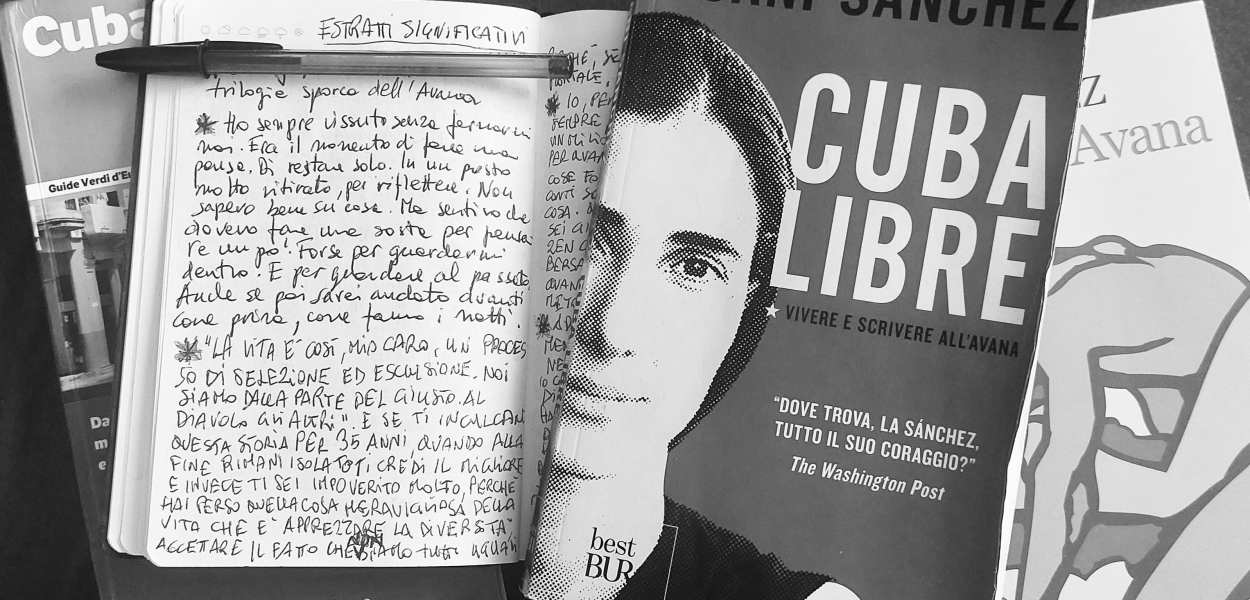 Cuba
Guide Verdi d'Eu
Da
m
e
ESTRATTI SIGNIFICATIVI
trilogia sporca dell'Avana
Ho sempre vissuto senza fermarmi
mai. Era il momento di fare una
pausa. Di restare solo. In un posto
molto ritirato, per riflettere. Non
sapevo bene su cosa. Ma sentivo che
dovevo fare una sosta per pensa
re un po'. Forse per guardarmi
dentro. E per guardare al passato
Anche se poi sarei andato avanti
come prima, come fanno i matti.
"LA VITA È COSÌ, MIO CARO, UN PROCES
SO DI SELEZIONE ED ESCLUSIONE. NOI
SIAMO DALLA PARTE DEL GIUSTO. AL
DIAVOLO GLI ALTRI". E SE TI INCULCANO
QUESTA STORIA PER 35 ANNI, QUANDO ALLA
FINE RIMANI ISOLATO TI CREDI IL MIGLIORE
E INVECE TI SEI IMPOVERITO MOLTO, PERCHÉ
HAI PERSO QUELLA COSA MERAVIGLIOSA DELLA
VITA CHE È APPREZZARE LA DIVERSITÀ
ACCETTARE IL FATTO CHE NON SIAMO TUTTI UGUALI
IO, PER
SEMPRE
PER AVAN
COSE FO
CONTI SU
COSA.
SEI
ZEN
BERSA
AVANT
METR
SÁNCHEZ
CUBA
LIBRE
VIVERE E SCRIVERE ALL'AVANA
"DOVE TROVA, LA SÁNCHEZ,
TUTTO IL SUO CORAGGIO?"
The Washington Post
best
BUR
z
Avana